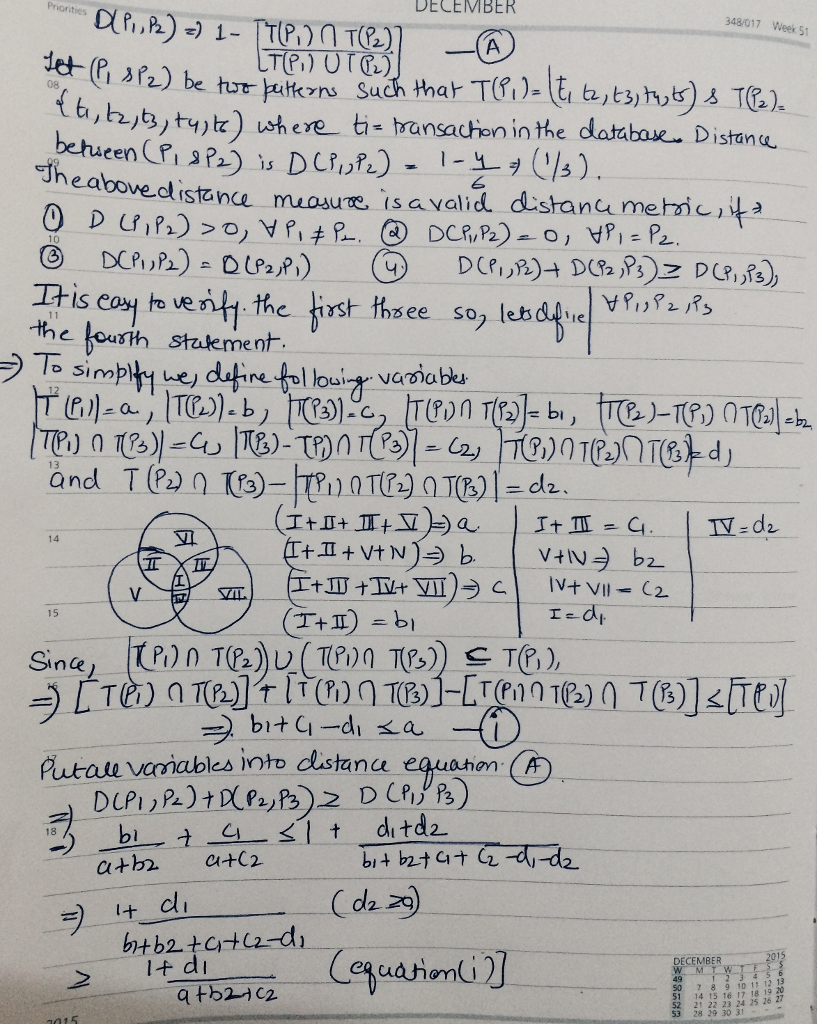 Priorities
DECEMBER
348/017 Week 51
D(P1, P2) => 1 - |T(P1) ∩ T(P2)| / |T(P1) ∪ T(P2)| — (A)
Let (P1 & P2) be two patterns such that T(P1) = {t1, t2, t3, t4, t5} & T(P2) =
08
{t1, t2, t3, t4, t6) where ti = transaction in the database. Distance
between (P1 & P2) is D(P1, P2) = 1 - 4/6 => (1/3).
09
The above distance measure is a valid distance metric, if
① D (P1, P2) > 0, ∀ P1 ≠ P2. ② D(P1, P2) = 0, ∀P1 = P2.
10
③ D(P1, P2) = D(P2, P1) ④ D(P1, P2) + D(P2, P3) ≥ D(P1, P3),
It is easy to verify the first three so, lets define | ∀ P1, P2, P3
11
the fourth statement.
=> To simplify we, define following variables
12
|T(P1)| = a, |T(P2)| = b, |T(P3)| = c, |T(P1) ∩ T(P2)| = b1, |T(P2) - T(P1) ∩ T(P2)| = b2
|T(P1) ∩ T(P3)| = C1, |T(P3) - T(P1) ∩ T(P3)| = C2, |T(P1) ∩ T(P2) ∩ T(P3)| = d1
13
and T(P2) ∩ T(P3) - |T(P1) ∩ T(P2) ∩ T(P3)| = d2.
14
VI
II
III
I
V
IV
VII
(I + II + III + VI) => a
(I + II + V + IV) => b.
(I + III + IV + VII) => c
(I + II) = b1
I + III = C1.
V + IV => b2
IV + VII = C2
I = d1
IV = d2
15
Since, |T(P1) ∩ T(P2)) ∪ (T(P1) ∩ T(P3)) ⊆ T(P1),
=> [T(P1) ∩ T(P2)] + [T(P1) ∩ T(P3)] - [T(P1) ∩ T(P2) ∩ T(P3)] ≤ [T(P1)]
=> b1 + C1 - d1 ≤ a — (i)
Put all variables into distance equation (A)
=> D(P1, P2) + D(P2, P3) ≥ D(P1, P3)
18
=> b1/(a+b2) + C1/(a+C2) ≤ 1 + (d1+d2)/(b1+b2+C1+C2-d1-d2)
=> 1 + d1/(b1+b2+C1+C2-d1) (d2 ≥ 0)
≥ 1 + d1/(a+b2+C2) (equation (i)]
DECEMBER 2015
W M T W T F S S
49 1 2 3 4 5 6
50 7 8 9 10 11 12 13
51 14 15 16 17 18 19 20
52 21 22 23 24 25 26 27
53 28 29 30 31
2015